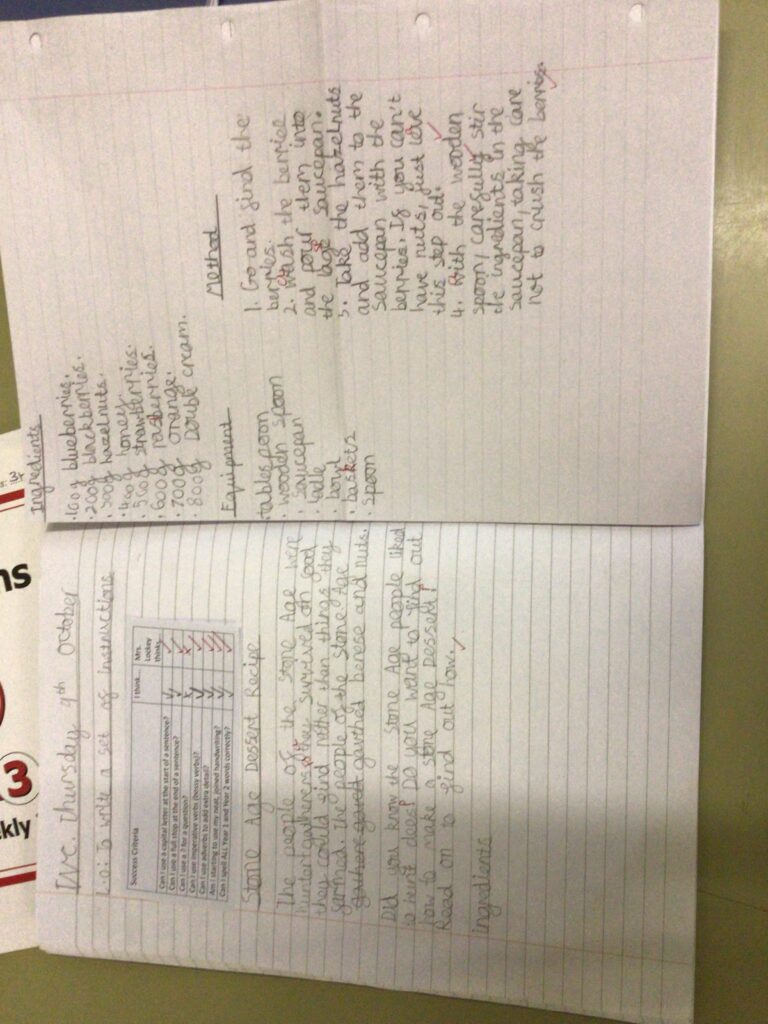 Inc. Thursday 9th October
L.O: To write a set of instructions
Success Criteria
I think...
Mrs. Lockey thinks...
Can I use a capital letter at the start of a sentence?
Can I use a full stop at the end of a sentence?
Can I use a ? for a question?
Can I use imperative verbs (bossy verbs)?
Can I use adverbs to add extra detail?
Am I starting to use my neat, joined handwriting?
Can I spell ALL Year 1 and Year 2 words correctly?
Stone Age Dessert Recipe
The people of the Stone Age were
hunter gatherers they survived on food
they could find rather than things they
farmed. The people of the Stone Age
gathered and nuts.
Did you know the Stone Age people liked
to hunt Do you want to find out
how to make a Stone Age Dessert?
Read on to find out how.
ingredients
Ingredients
• 100g blueberries.
• 200g blackberries.
• 300g hazelnuts.
• 400g honey.
• 500g strawberries.
• 600g rasberries.
• 700g orange.
• 800g Double cream.
Equipment
• tablespoon
• wooden spoon
• saucepan
• ladle
• bowl
• baskets
• spoon
Method
1. Go and find the
berries.
2. wash the berries
and pour them into
the lage saucepan.
3. Take the hazelnuts
and add them to the
saucepan with the
berries. If you can't
have nuts, just leve
this step out.
4. with the wooden
spoon, carefully stir
the ingredients in the
saucepan, taking care
not to crush the berries.
ns
3
kly